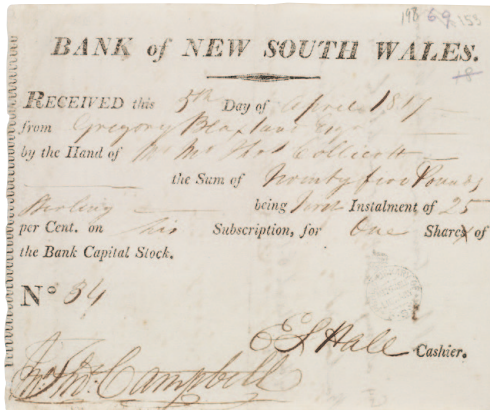 198 69 153
BANK of NEW SOUTH WALES.
RECEIVED this 5th Day of April 1817
from Gregory Blaxland Esqr
by the Hand of Mr Collicott
the Sum of Twenty five Pounds
Sterling being first Instalment of 25
per Cent. on his Subscription, for One Share of
the Bank Capital Stock.
No 34
E S Hall Cashier.
Campbell